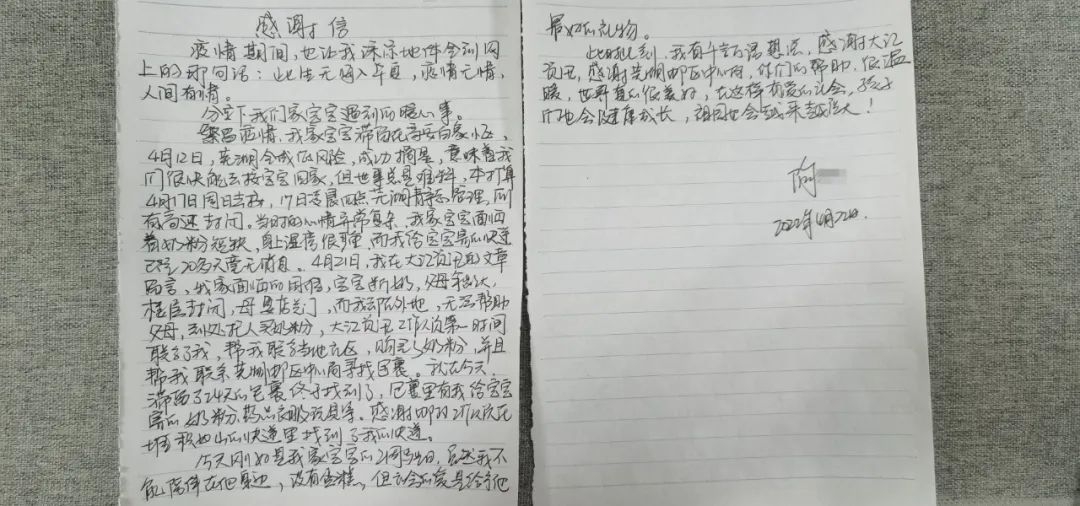 感谢信
疫情期间，也让我深深地体会到网
上的那句话：此生无悔入华夏，疫情无情，
人间有情。
分享下我们家宝宝遇到的暖心事。
疫情，我家宝宝滞留在高安白家
4月12日，芜湖全域低风险，成功摘星，意味着我
们很快能去接宝宝回家，但世事总是难料，本打算
4月17日周日去接，17日凌晨四点芜湖静态管理，所
有高速封闭。当时的心情异常复杂，我家宝宝面临
着奶粉短缺，身上湿疹很严重，而我给宝宝寄的快递
已经20多天毫无消息。4月21日，我在大江资讯的文章
留言，我家面临的困境，宝宝断奶，父母年纪大，
程应封闭，母婴店关门，而我却在外地，无法帮助
父母，到处托人买奶粉，大江资讯工作人员第一时间
联系了我，帮我联系当地社区，购买了奶粉，并且
帮我联系芜湖邮区中心局寻找包裹。就在今天，
滞留了24天的包裹终于找到了，包裹里有我给宝宝
寄的奶粉、药品衣服玩具等。感谢邮政工作人员在
堆积如山的快递里找到了我的快递。
今天刚好是我家宝宝的2周岁生日，虽然我不
能陪伴在他身边，没有蛋糕，但社会的爱是给予他
最好的礼物。
此时此刻，我有千言万语想说，感谢大江
资讯，感谢芜湖邮区中心局，你们的帮助，很温
暖，世界真的很美好，在这样有爱的社会，孩子
们也会健康成长，祖国也会越来越强大！
2022年4月22日.